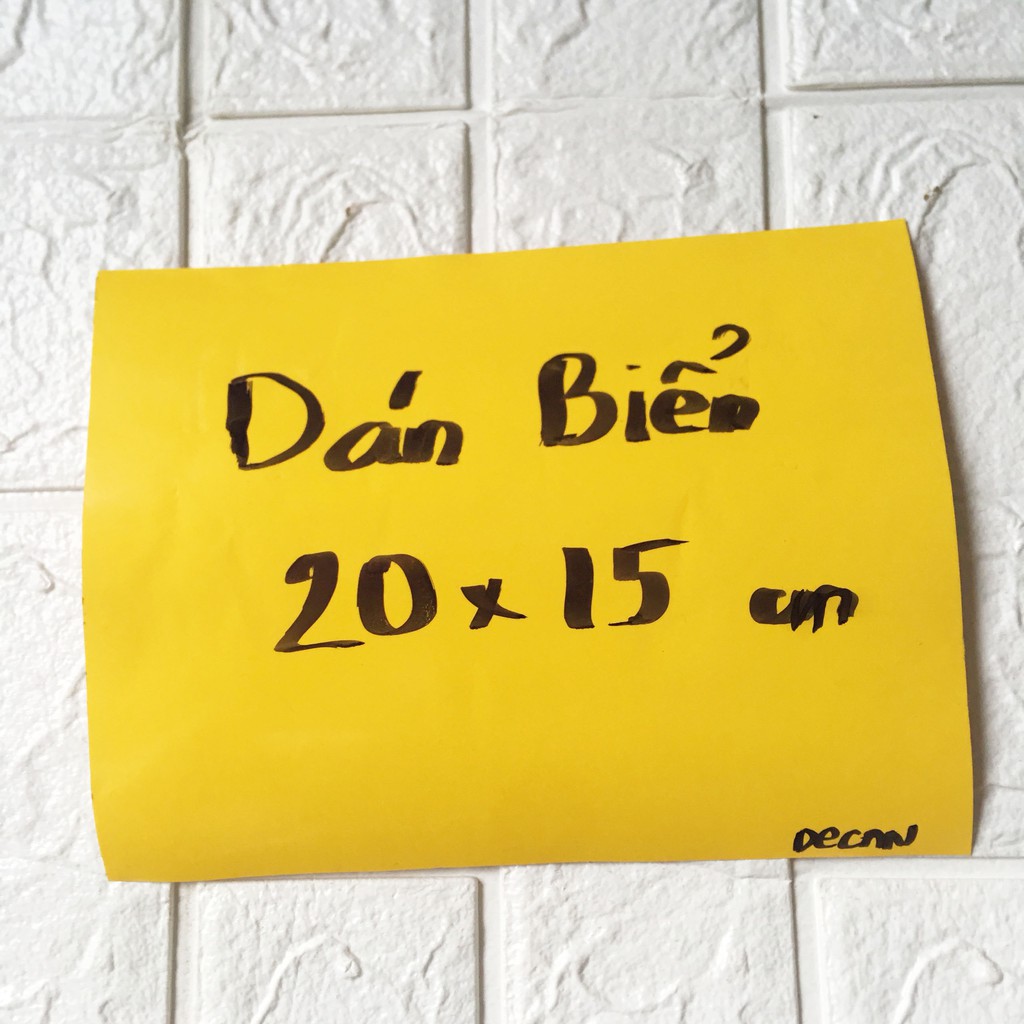 Dán Biển
20 x 15 cm
Decan